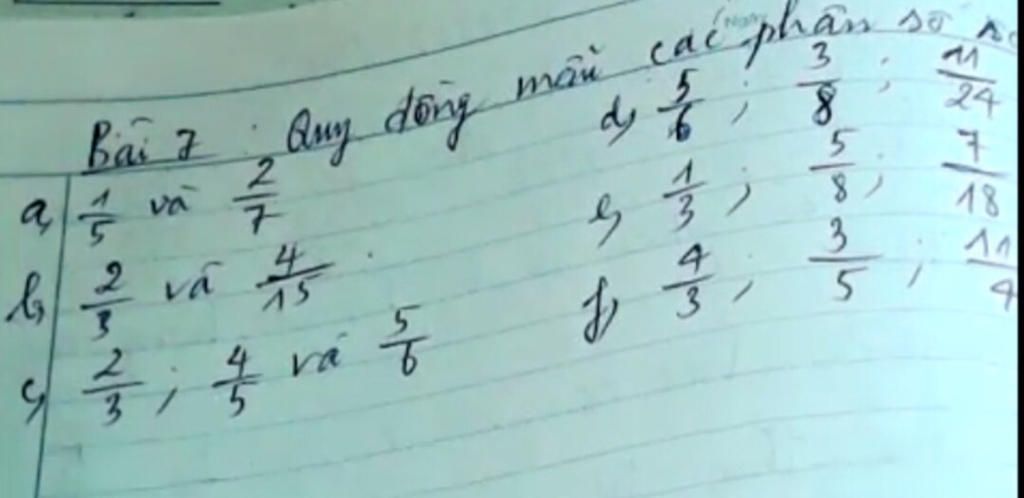 Bài 7: Quy đồng mẫu các phân số
a, 1/5 và 2/7
b, 2/3 và 4/15
c, 2/3 ; 4/5 và 5/6
d, 5/6 ; 3/8 ; 11/24
e, 1/3 ; 5/8 ; 7/18
f, 4/3 ; 3/5 ; 11/4